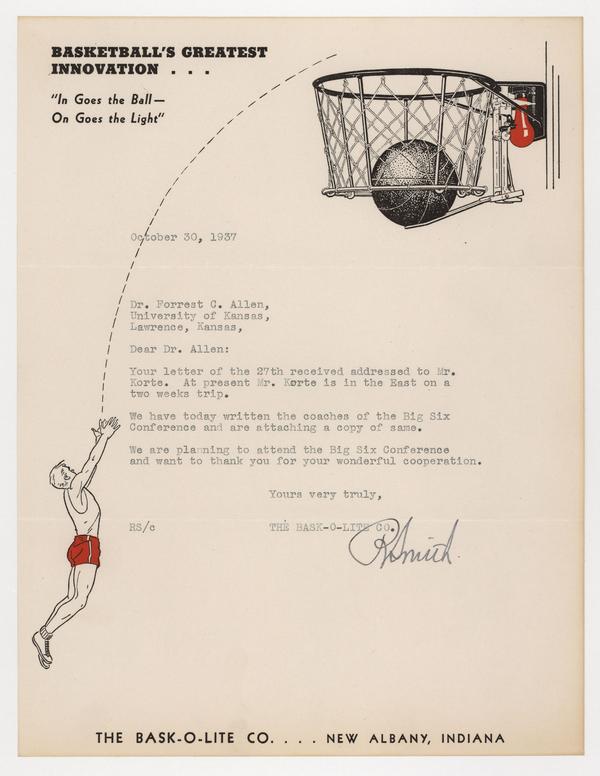 BASKETBALL'S GREATEST
INNOVATION . . .
"In Goes the Ball—
On Goes the Light"
October 30, 1937
Dr. Forrest C. Allen,
University of Kansas,
Lawrence, Kansas,
Dear Dr. Allen:
Your letter of the 27th received addressed to Mr.
Korte. At present Mr. Korte is in the East on a
two weeks trip.
We have today written the coaches of the Big Six
Conference and are attaching a copy of same.
We are planning to attend the Big Six Conference
and want to thank you for your wonderful cooperation.
Yours very truly,
RS/c THE BASK-O-LITE CO.
R Smith
THE BASK-O-LITE CO. . . . NEW ALBANY, INDIANA